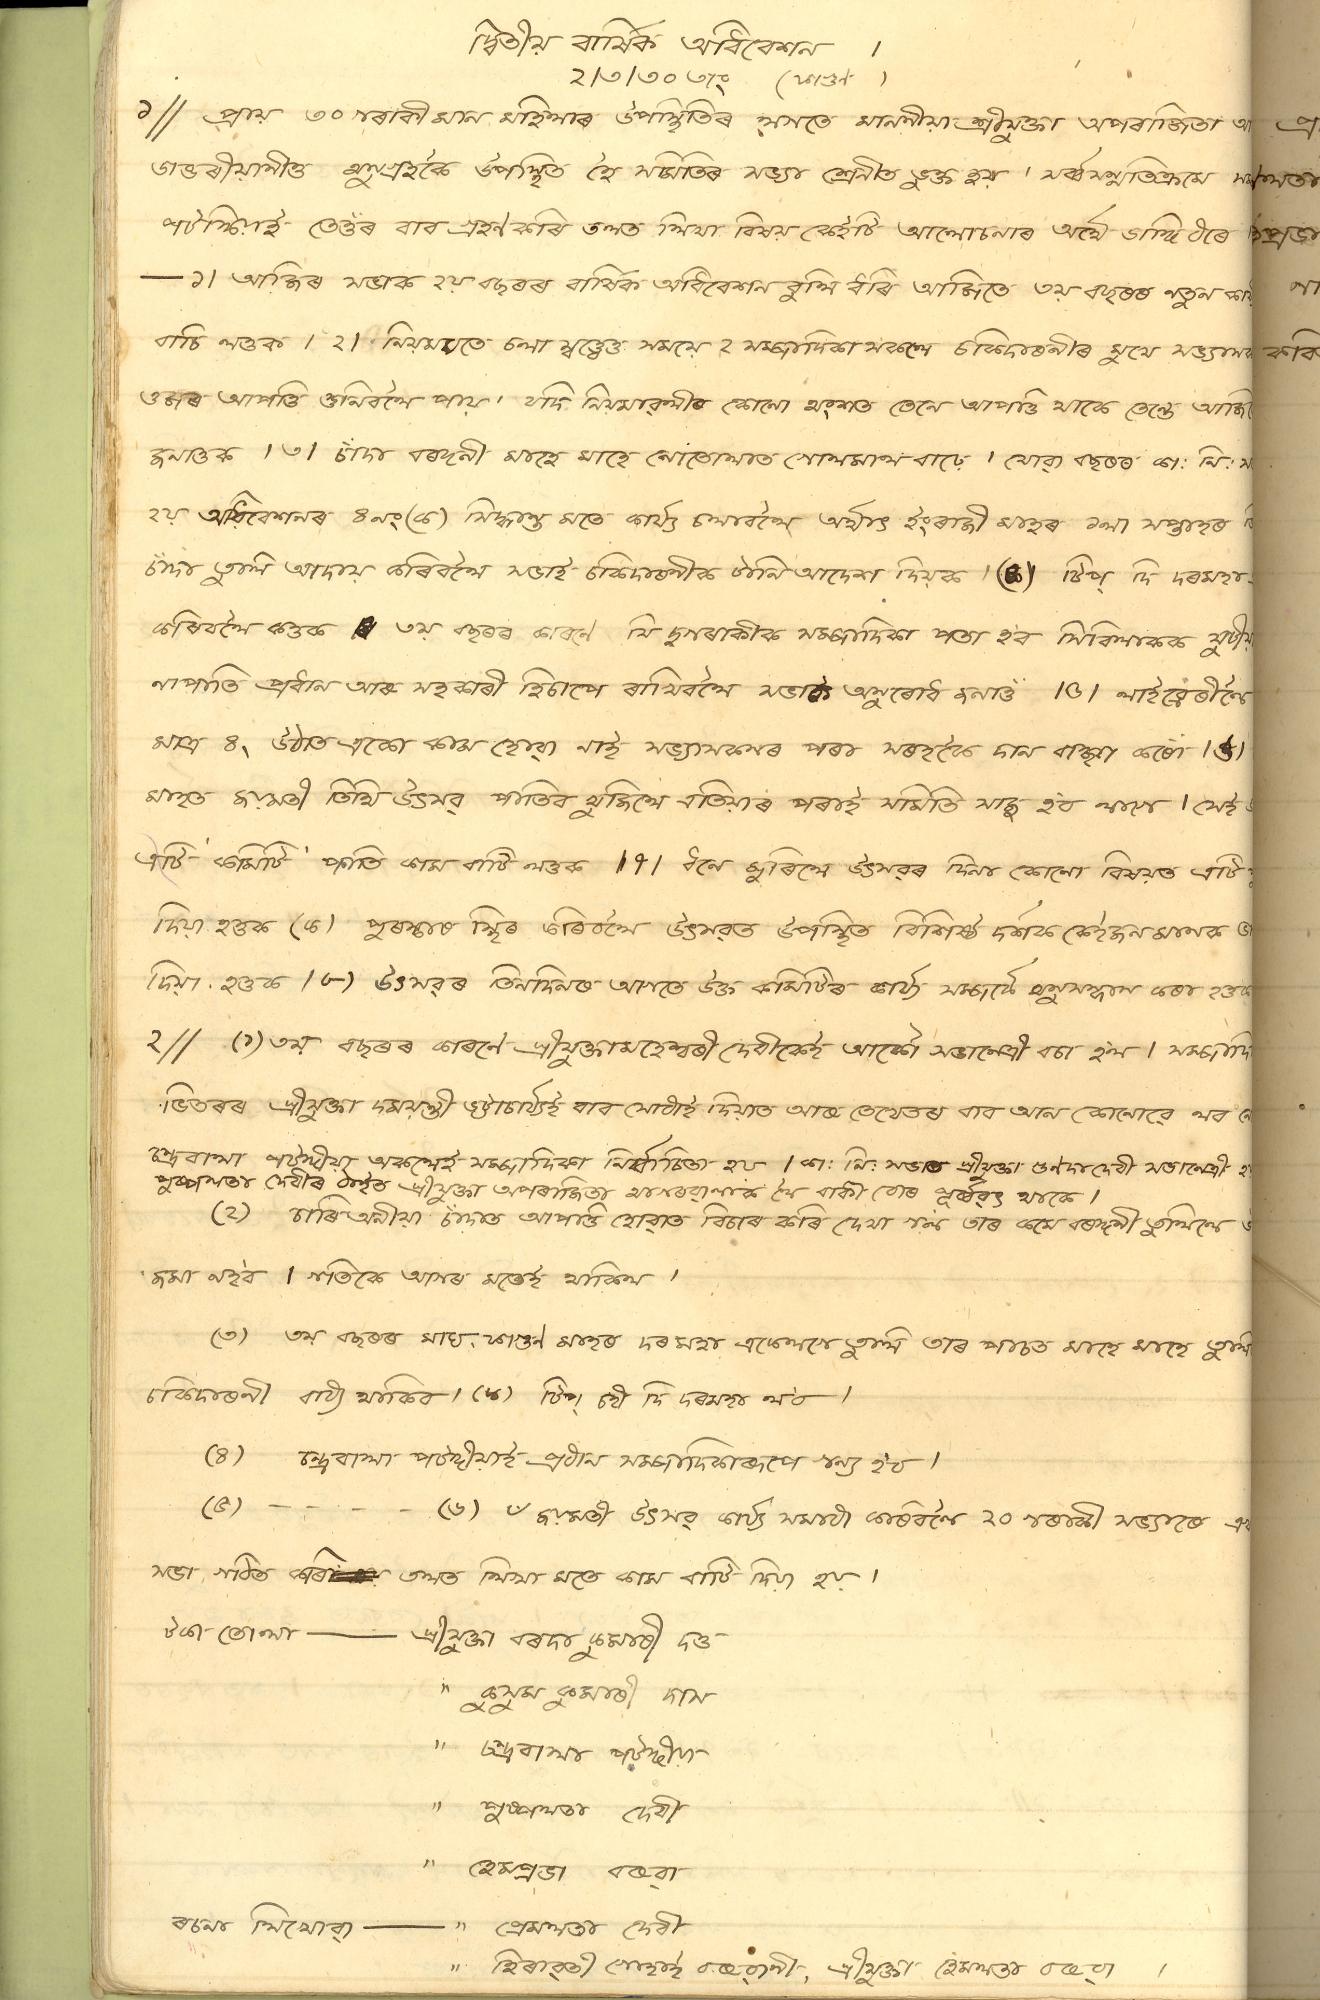 দ্বিতীয় বাৰ্ষিক অধিবেশন ।
২/৩/৩০ তাং (ফাগুণ )
১// প্ৰায় ৩০ গৰাকীমান মহিলাৰ উপস্থিতিৰ লগতে মাননীয়া শ্ৰীযুক্তা অপৰাজিতা
উপস্থিত হৈ সমিতিৰ সভ্যা শ্ৰেণীত ভুক্ত হয় । সৰ্ব্বসন্মতিক্ৰমে
পটঙ্গিয়াই তেওঁৰ বাব গ্ৰহণ কৰি তলত লিখা বিষয় কেইটি আলোচনাৰ অৰ্থে দাঙ্গি ধৰে
— ১। আজিৰ সভাক ২য় বছৰৰ বাৰ্ষিক অধিবেশন বুলি ধৰি আজিতে ৩য় বছৰৰ নতুন
বাচি লওক । ২। নিয়মমতে চলা স্বত্ত্বেও সময়ে ২ সম্পাদিকা সকলে চকিদাৰনীৰ মুখে
ওজৰ আপত্তি শুনিবলৈ পায় । যদি নিয়মাৱলীৰ কোনো অংশত তেনে আপত্তি থাকে তেন্তে
জনাওক । ৩। চাঁদা বৰঙ্গনী মাহে মাহে নোতোলাত গোলমাল বাঢ়ে । যোৱা বছৰৰ কা: নি:
২য় অধিবেশনৰ ৪নং (ক) সিদ্ধান্ত মতে কাৰ্য্য চলাবলৈ অৰ্থাৎ ইংৰাজী মাহৰ ১লা সপ্তাহৰ
চাঁদা তুলি আদায় কৰিবলৈ সভাই চকিদাৰনীক টানি আদেশ দিয়ক । টিপ্ দি দৰমহা
কৰিবলৈ কওক ৩য় বছৰৰ কাৰণে যি দুগৰাকীক সম্পাদিকা পতা হ'ব
প্ৰধান আৰু সহকাৰী হিচাপে ৰাখিবলৈ সভাক অনুৰোধ জনাওঁ ।৫। লাইব্ৰেৰীলৈ
মাত্ৰ ৪৲ উঠাত একো কাম হোৱা নাই সভ্যাসকলৰ পৰা সৰহকৈ দান বাঞ্ছা কৰোঁ ।৬।
মাহত জয়মতী তিথি উৎসৱ্ পাতিব খুজিলে এতিয়াৰ পৰাই সমিতি সাজু হ'ব লাগে । সেই
এটি 'কমিটি' পাতি কাম বাটি লওক ।৭। ধনে জুৰিলে উৎসৱৰ দিনা কোনো বিষয়ত এটি
দিয়া হওক (ক) পুৰস্কাৰ স্থিৰ কৰিবলৈ উৎসৱত উপস্থিত বিশিষ্ট দৰ্শক কেইজনমানক
দিয়া হওক ।৮) উৎসৱৰ তিনদিনৰ আগতে উক্ত কমিটিৰ কাৰ্য্য সম্পৰ্কে অনুসন্ধান কৰা
২// (১) ৩য় বছৰৰ কাৰণে শ্ৰীযুক্তা মহেশ্বৰী দেবীকেই আকৌ সভানেত্ৰী বচা হ'ল ।
ভিতৰৰ শ্ৰীযুক্তা দময়ন্তী ভট্টাচাৰ্য্যই বাব শোধাই দিয়াত আৰু তেখেতৰ বাব আন কোনোৱে
চন্দ্ৰবালা পটঙ্গীয়া অকলেই সম্পাদিকা নিৰ্ব্বাচিতা হয় । কা: নি: সভাৰ শ্ৰীযুক্তা গুণদা দেবী সভানেত্ৰী
পুষ্পলতা দেবীৰ ঠাইত শ্ৰীযুক্তা অপৰাজিতা লৈ বাকী বোৰ পূৰ্ব্ববৎ থাকে ।
(২) চাৰিঅনীয়া চাঁদাত আপত্তি হোৱাত বিচাৰ কৰি দেখা গ'ল তাৰ কমে বৰঙ্গনী তুলিলে
জমা নহ'ব । গতিকে আগৰ মতেই থাকিল ।
(৩) ৩য় বছৰৰ মাঘ, ফাগুণ মাহৰ দৰমহা একেলগে তুলি তাৰ পাচত মাহে মাহে তুলি
চকিদাৰনী বাধ্য থাকিব । (ক) টিপ্ চহী দি দৰমহা ল'ব ।
(৪) চন্দ্ৰবালা পটঙ্গীয়াই প্ৰধান সম্পাদিকাৰূপে গন্য হ'ব ।
(৫) - - - - (৬) ৺জয়মতী উৎসৱ্ কাৰ্য্য সমাধা কৰিবলৈ ২০ গৰাকী সভ্যাৰে
সভা গঠিত কৰি তলত লিখা মতে কাম বাটি দিয়া হয় ।
টকা তোলা — শ্ৰীযুক্তা বৰদা কুমাৰী দত্ত
" কুসুম কুমাৰী দাস
" চন্দ্ৰবালা পটঙ্গীয়া
" পুষ্পলতা দেবী
" হেমপ্ৰভা বৰুৱা
ৰচনা লিখোৱা — " প্ৰেমলতা দেবী
" হিৰাৱতী গোহাই বৰুৱানী, শ্ৰীযুক্তা হেমলতা বৰুৱা ।